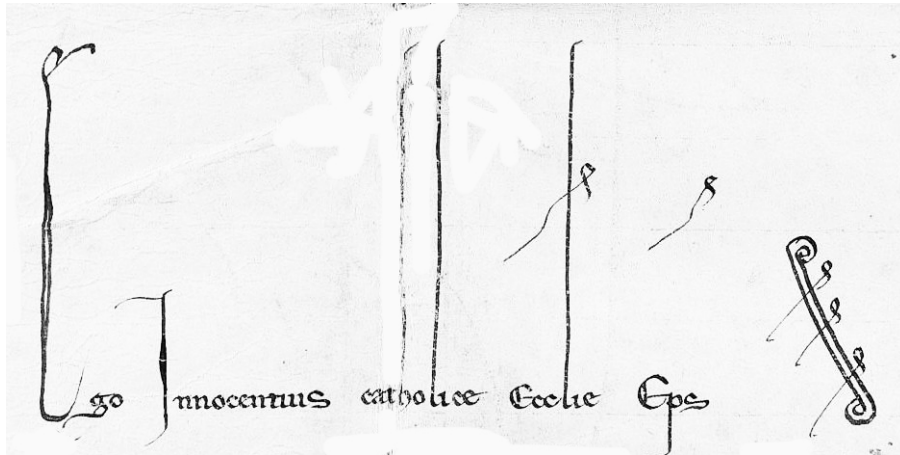 Ego Innocentius catholice Ecclie Eps